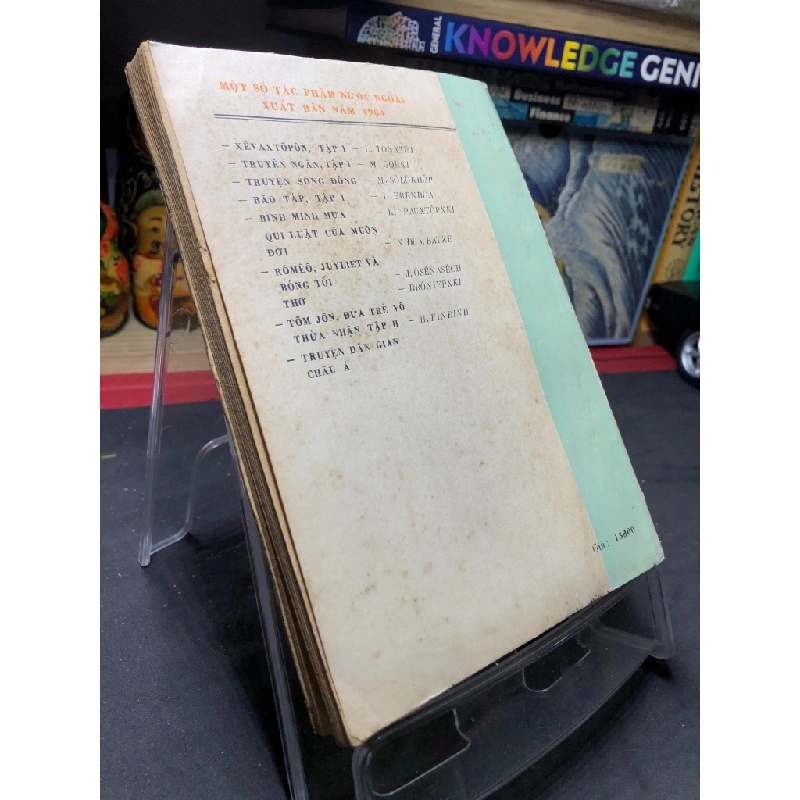 GENERAL KNOWLEDGE GENI
Business
Finance
HISTORY
MỘT SỐ TÁC PHẨM NƯỚC NGOÀI
XUẤT BẢN NĂM 1964
— XÊVAXTÔPÔN, TẬP I — L. TÔNXTÔI
— TRUYỆN NGẮN, TẬP I — M. GORKI
— TRUYỆN SÔNG ĐÔNG — M. SÔLÔKHỐP
— BÃO TÁP, TẬP I — I. ÊRENBUA
— BÌNH MINH MƯA — K. PAUXTỐPXKI
QUI LUẬT CỦA MUÔN
ĐỜI —
— RÔMÊÔ, JUYLIET VÀ
BÓNG TỐI — J. ÔSÊNASÊCH
THƠ —
— TÔM JÔN, ĐỨA TRẺ VÔ
THỪA NHẬN TẬP II — H. FINĐINH
— TRUYỆN DÂN GIAN
CHÂU Á
Giá :